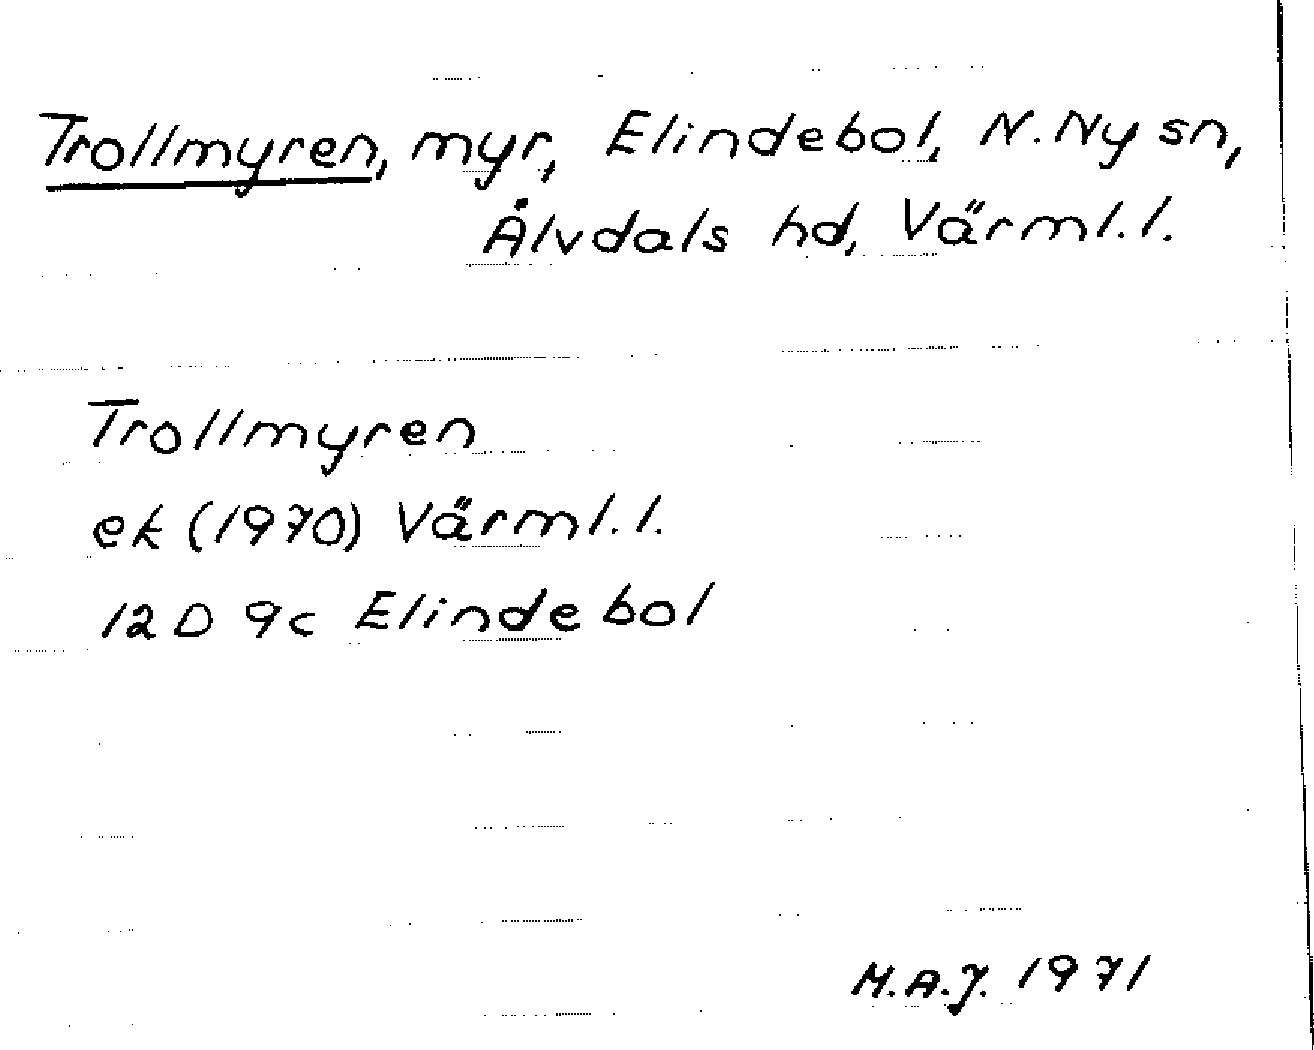 Trollmyren, myr, Elindebol, N.Ny sn,
Älvdals hd, Värml.l.
Trollmyren
ek (1970) Värml.l.
12 D 9c Elindebol
M.A.J. 1971